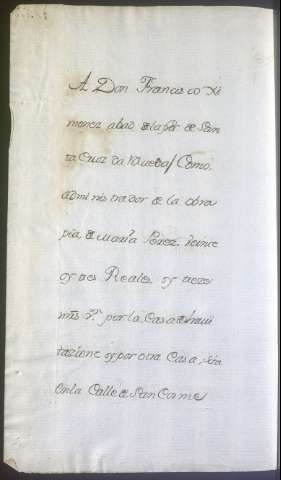 A Don Francisco Xi
menez abad de la Pr de San
ta Cruz da Como
administrador de la obra
pia de Maria Perez veinte
y tres Reales y treze
mrs por la Casa de
y por otra Casa
en la Calle de San Cosme